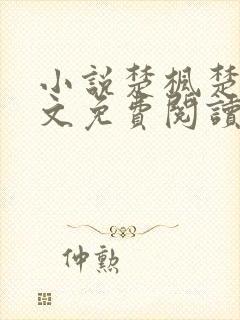 小說楚楓楚
文免費閱讀
仲勲